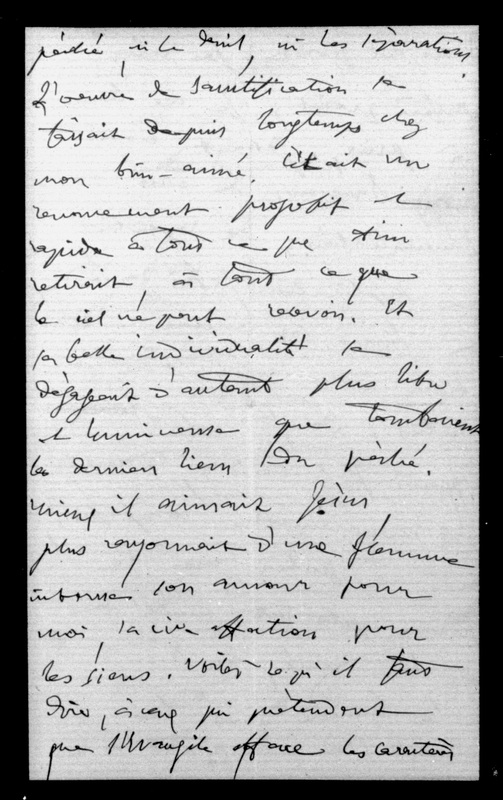 péché, ni le deuil, ni les séparations.
L'oeuvre de sanctification se
faisait depuis longtemps chez
mon bien-aimé. C'était un
renoncement profond et
rapide à tout ce que Dieu
retirait, à tout ce que
le ciel ne peut recevoir. Et
sa belle individualité se
dégageait d'autant plus libre
et lumineuse que tombaient
les derniers liens du péché.
mieux il aimait Jésus,
plus rayonnait d'une flamme
intense son amour pour
moi, sa vive affection pour
les siens. Voilà ce qu'il faut
dire, à ceux qui prétendent
que l'Evangile efface les caractères